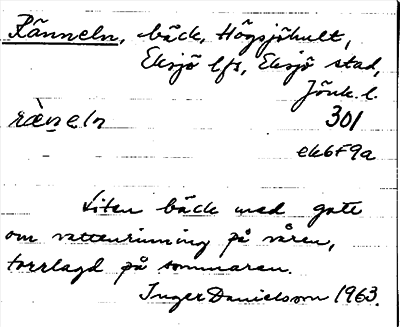 Ränneln, bäck, Högsjöhult,
Eksjö lfs, Eksjö stad,
Jönk. l.
ræ̀neln 301
ek6F9a
Liten bäck med gott
om vattenrinning på våren,
torrlagd på sommaren.
Inger Danielsson 1963.